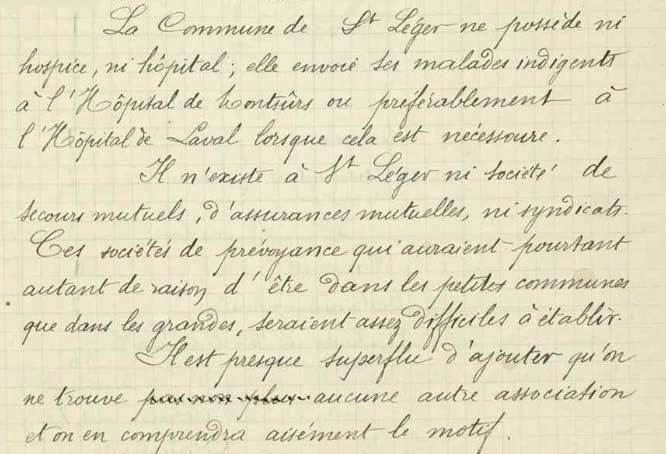 La Commune de St Léger ne possède ni
hospice, ni hôpital; elle envoie ses malades indigents
à l'Hôpital de Montsûrs ou préférablement à
l'Hôpital de Laval lorsque cela est nécessaire.
Il n'existe à St Léger ni société de
secours mutuels, d'assurances mutuelles, ni syndicats.
Ces sociétés de prévoyance qui auraient pourtant
autant de raison d'être dans les petites communes
que dans les grandes, seraient assez difficiles à établir.
Il est presque superflu d'ajouter qu'on
ne trouve pas non plus aucune autre association
et on en comprendra aisément le motif.